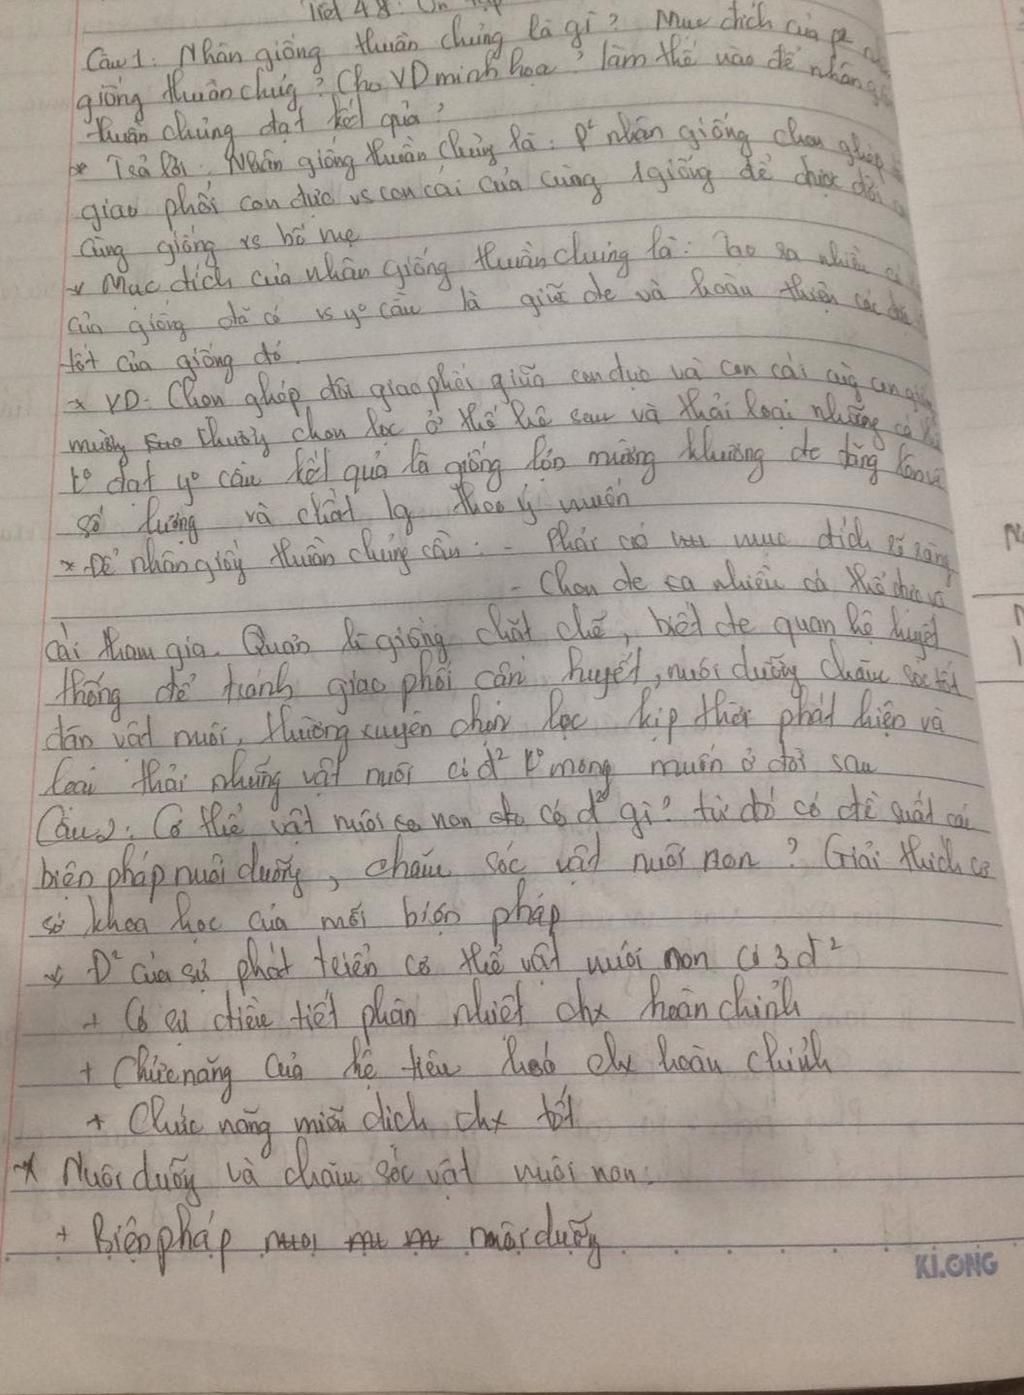 Tiết 48: Ôn tập
Câu 1: Nhân giống thuần chủng là gì? Mục đích của
giống thuần chủng? Cho VD minh họa? làm thế nào để nhân
thuần chủng đạt kết quả?
* Trả lời: Nhân giống thuần chủng là: P² nhân giống chọn ghép
giao phối con đực vs con cái của cùng 1 giống để được đời
cùng giống vs bố mẹ
* Mục đích của nhân giống thuần chủng là: Tạo ra nhiều cá
của giống đã có vs yº cầu là giữ đc và hoàn thiện các
tốt của giống đó.
* VD: Chọn ghép đôi giao phối giữa con đực và con cái cùng
mường thường chọn lọc ở thế hệ sau và thải loại những cá
đạt yº cầu kết quả là giống lợn mường khương đc tăng lên về
số lượng và chất lg theo ý muốn
* Để nhân giống thuần chủng cần: - Phải có mục đích rõ ràng
- Chọn đc ra nhiều cá thể đực và
cái tham gia. Quản lí giống chặt chẽ, biết đc quan hệ huyết
thống để tránh giao phối cận huyết, nuôi dưỡng chăm sóc tốt
đàn vật nuôi, thường xuyên chọn lọc kịp thời phát hiện và
loại thải những vật nuôi có đ² kº mong muốn ở đời sau
Câu 2: Cơ thể vật nuôi non có đ² gì? từ đó có đề suất các
biện pháp nuôi dưỡng, chăm sóc vật nuôi non? Giải thích cơ
sở khoa học của mỗi biện pháp
* Đ² của sự phát triển cơ thể vật nuôi non có 3 đ²
+ Có sự điều tiết phân nhiệt chx hoàn chỉnh
+ Chức năng của hệ tiêu hoá chx hoàn chỉnh
+ Chức năng miễn dịch chx tốt
* Nuôi dưỡng và chăm sóc vật nuôi non:
+ Biện pháp nuôi dưỡng
KLONG